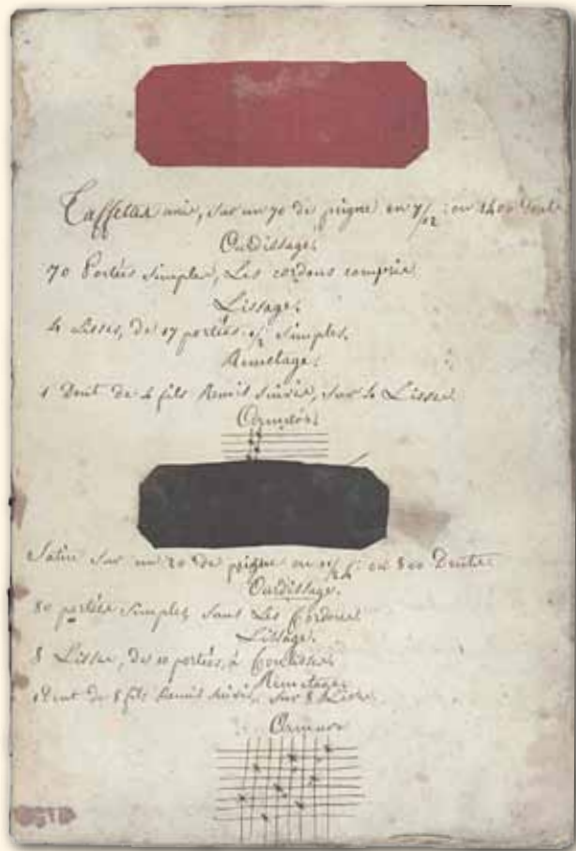 Taffetas uni, sur un 70 de peigne en 7/12: ou 1400 Dents
Ourdissage.
70 Portées simples, Les cordons compris
Lissage.
4 Lisses, de 17 portées 1/2 simples.
Remetage.
1 Dent de 4 fils Remis suivis, sur 4 Lisses
Armure.
Satin sur un 20 de peigne en 11/24: ou 800 Dents
Ourdissage.
80 portées simples sans Les Cordons
Lissage.
8 Lisses, de 10 portées, à Coulisses
Remetage.
1 Dent de 8 fils Remis suivis, sur 8 Lisses
Armure